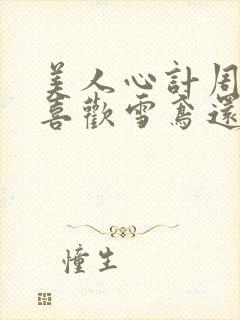 美人心計周
喜歡雪鳶還
憧生